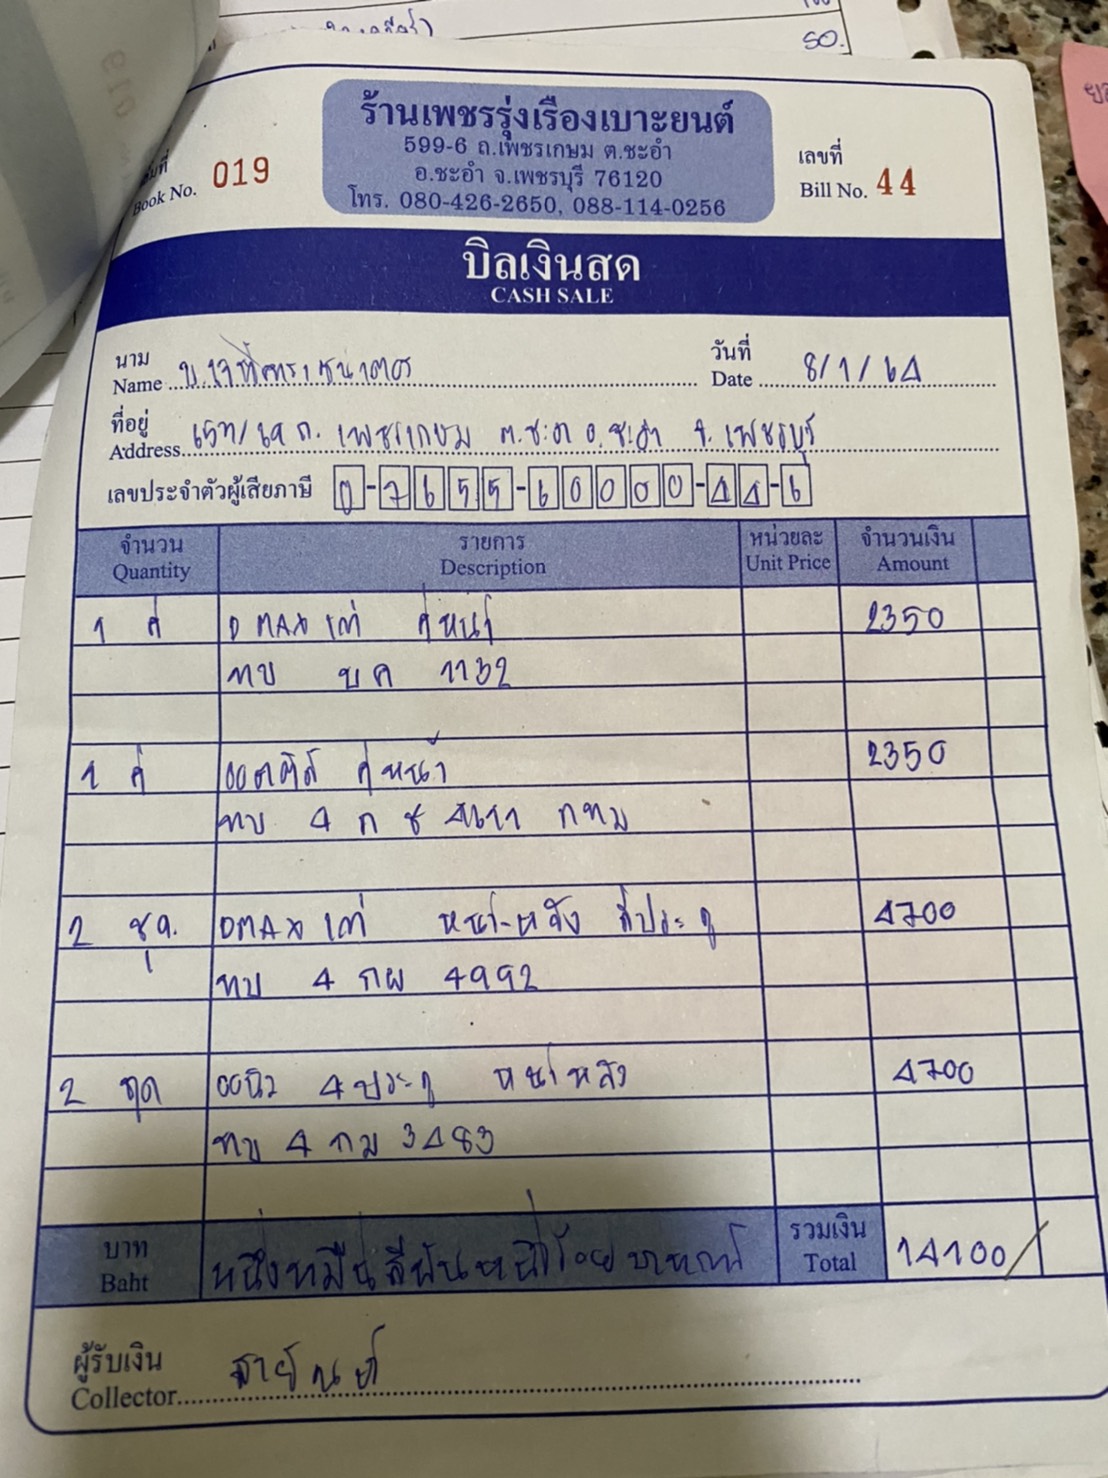 50.
ร้านเพชรรุ่งเรืองเบาะยนต์
599-6 ถ.เพชรเกษม ต.ชะอำ
อ.ชะอำ จ.เพชรบุรี 76120
โทร. 080-426-2650, 088-114-0256
Book No. 019
เลขที่
Bill No. 44
บิลเงินสด
CASH SALE
นาม
Name
วันที่
Date 8/1/64
ที่อยู่
Address ถ. เพชรเกษม ต.ชะอำ อ.ชะอำ จ. เพชรบุรี
เลขประจำตัวผู้เสียภาษี 0-7655-60000-44-6
จำนวน รายการ หน่วยละ จำนวนเงิน
Quantity Description Unit Price Amount
1 คู่ DMAX เก๋ คู่หน้า 2350
ทบ บค 1132
1 คู่ คู่หน้า 2350
ทบ 4 ก ช กทม
2 ชุด DMAX เก๋ หน้า-หลัง สี่ประตู 4700
ทบ 4 กผ 4992
2 ชุด 4 ประตู หน้าหลัง 4700
ทบ 4 กม 3483
บาท หนึ่งหมื่นสี่พันหนึ่งร้อยบาทถ้วน รวมเงิน 14100/
Baht Total
ผู้รับเงิน
Collector